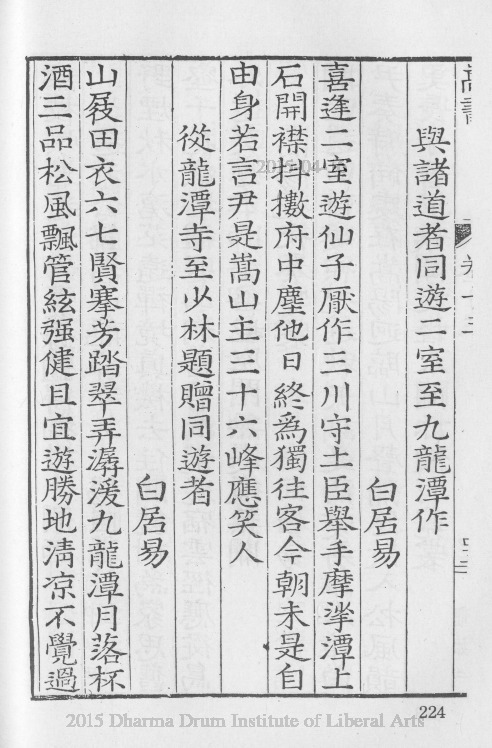 嵩書
卷十三
與諸道者同遊二室至九龍潭作
白居易
喜逢二室遊仙子厭作三川守土臣舉手摩挲潭上
石開襟抖擻府中塵他日終為獨往客今朝未是自
由身若言尹是嵩山主三十六峰應笑人
從龍潭寺至少林題贈同遊者
白居易
山屐田衣六七賢搴芳踏翠弄潺湲九龍潭月落杯
酒三品松風飄管絃强健且宜遊勝地清凉不覺過
224
2015 Dharma Drum Institute of Liberal Arts